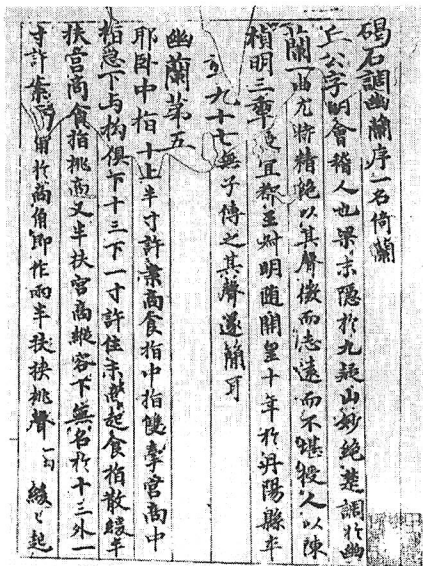 碣石調幽蘭序一名倚蘭
丘公字明會稽人也梁末隱於九疑山妙絕楚調於幽
蘭一曲尤特精絕以其聲微而志遠而不堪授人以陳
禎明三年授宜都王叔明隨開皇十年於丹陽縣卒
年九十七無子傳之其聲遂簡耳
幽蘭第五
耶臥中指十上半寸許案商食指中指雙牽宮商中
指急下与拘俱下十三下一寸許住末商起食指散緩半
扶宮商食指挑商又半扶宮商縱容下無名於十三外一
寸許案商角於商角即作兩半扶挾挑聲一句緩〻起